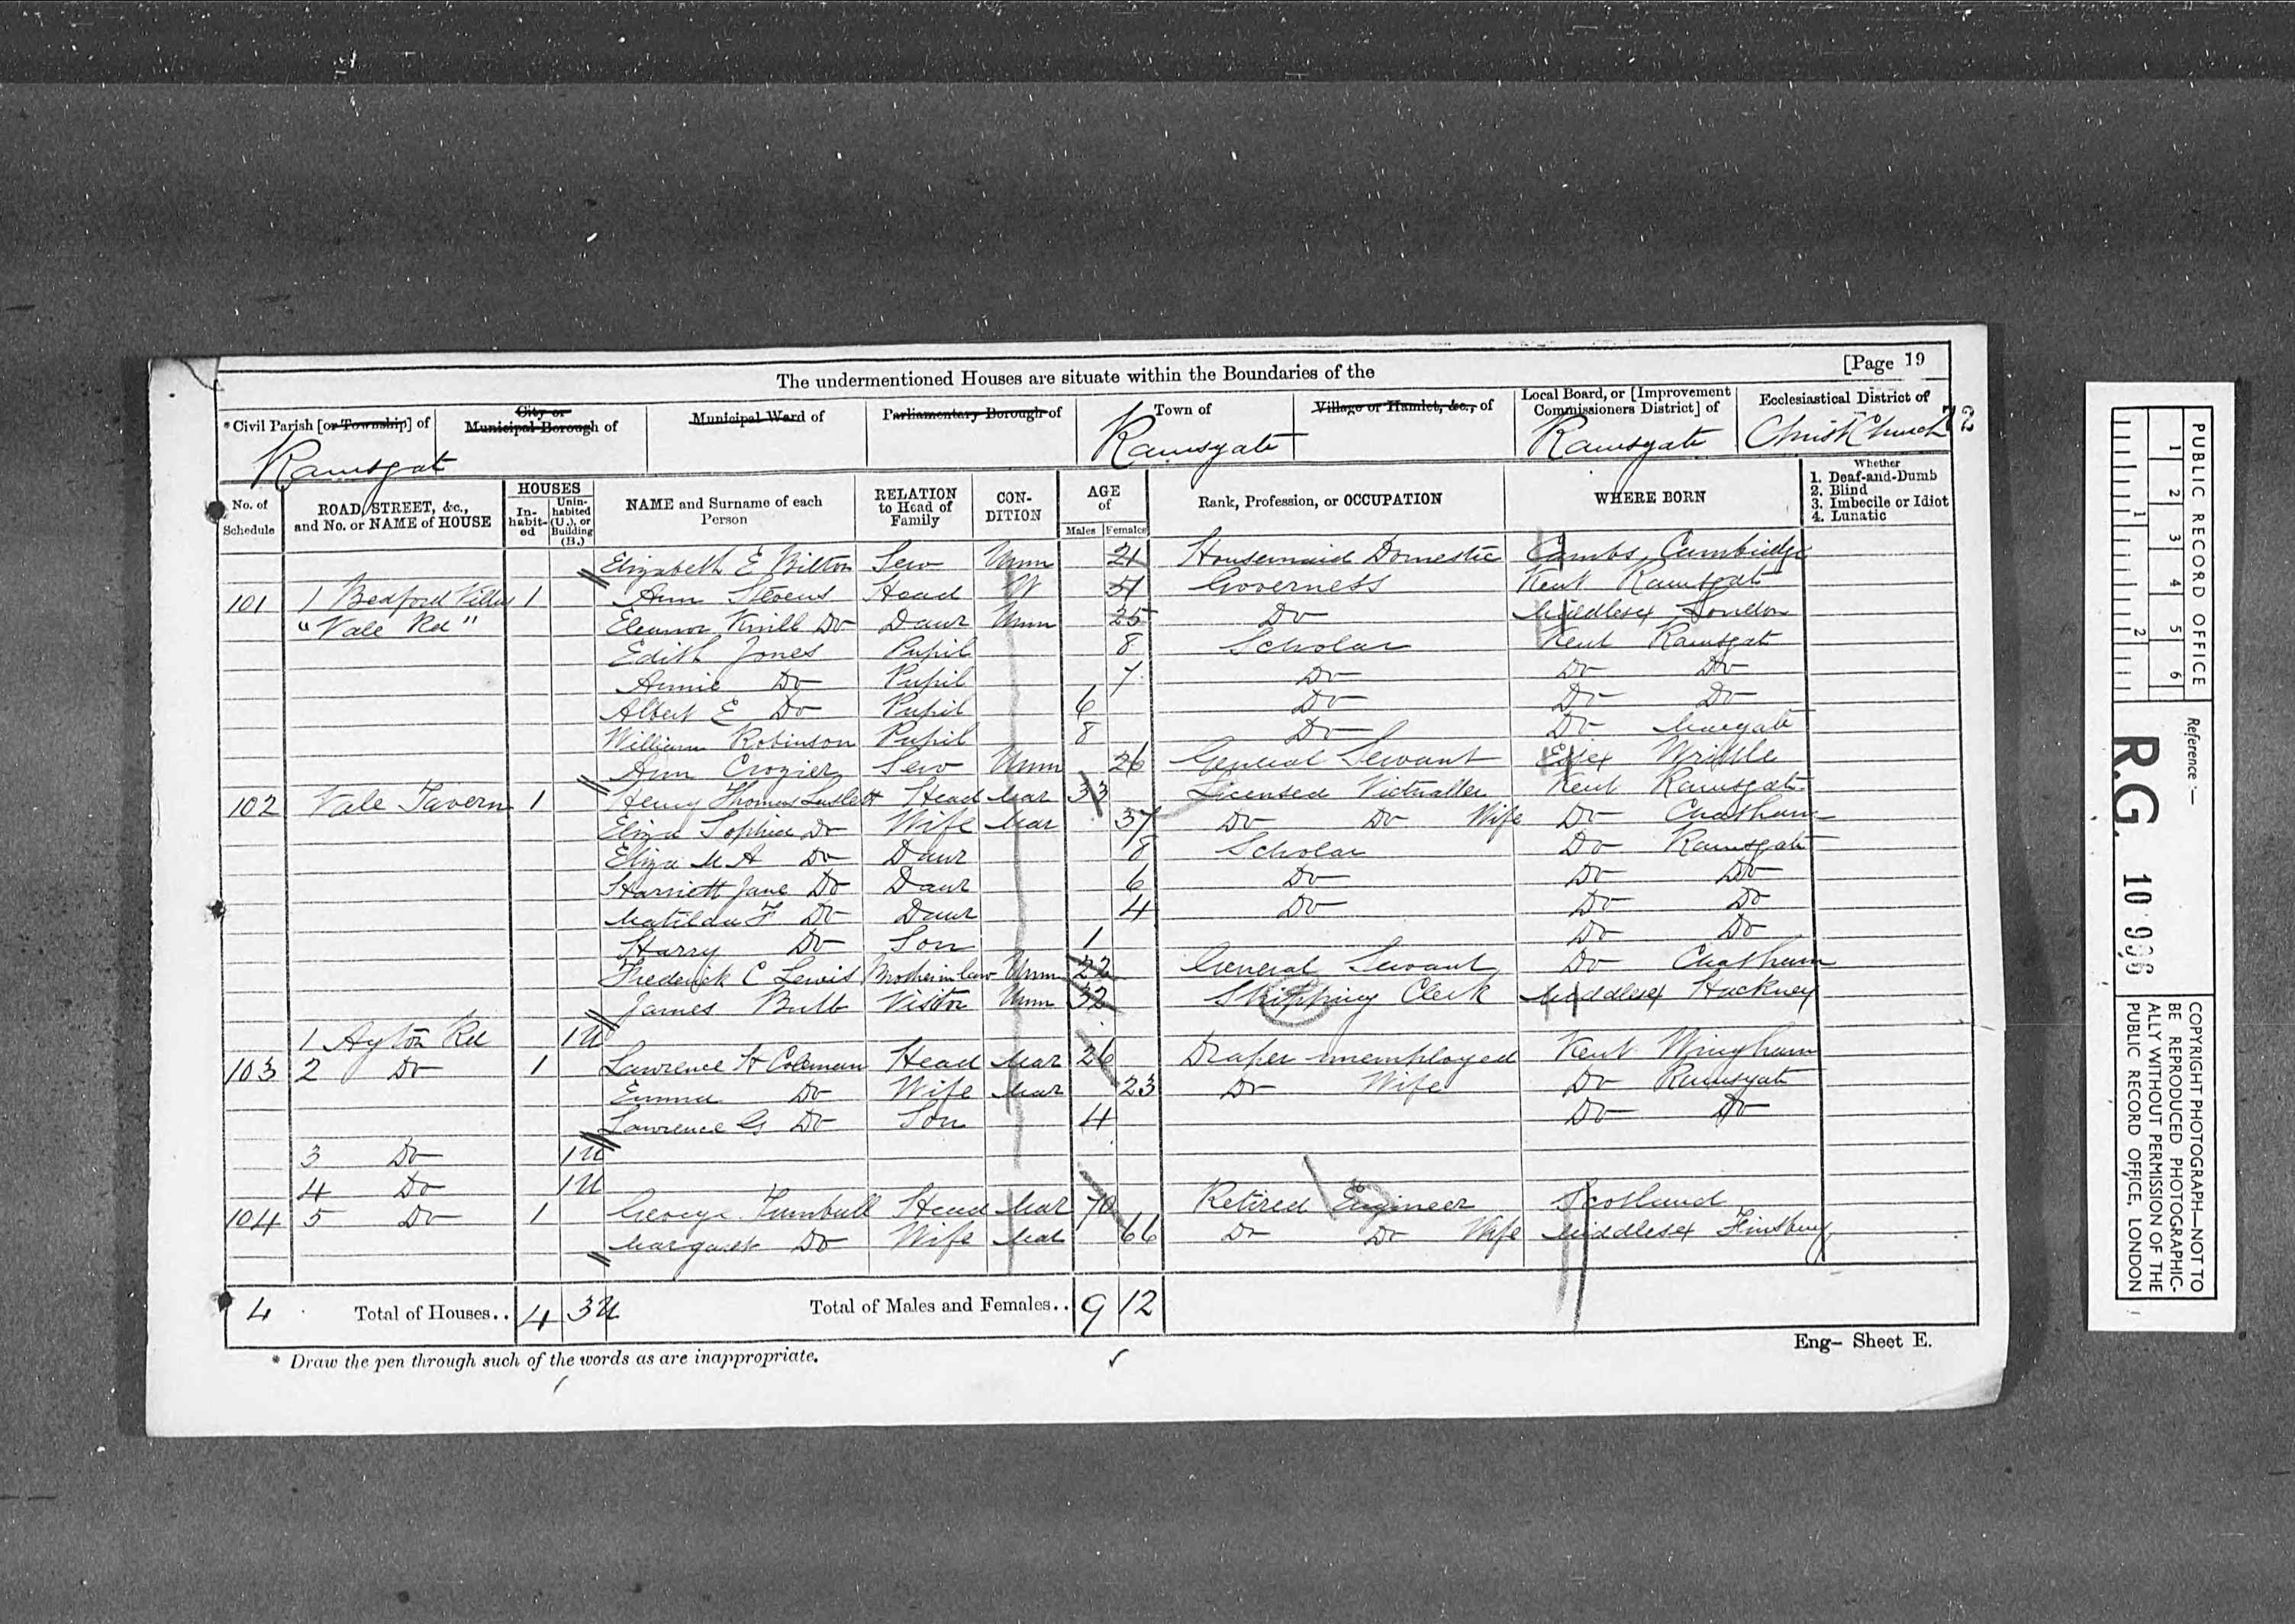 [Page 19
The undermentioned Houses are situate within the Boundaries of the
*Civil Parish [or Township] of City or Municipal Borough of Municipal Ward of Parliamentary Borough of Town of Village or Hamlet, &c., of Local Board, or [Improvement Commissioners District] of Ecclesiastical District of
Ramsgat Ramsgate Ramsgate Christ Church 72
No. of Schedule ROAD, STREET, &c., and No. or NAME of HOUSE HOUSES Inhabited Uninhabited (U.), or Building (B.) NAME and Surname of each Person RELATION to Head of Family CONDITION AGE of Males Females Rank, Profession, or OCCUPATION WHERE BORN Whether 1. Deaf-and-Dumb 2. Blind 3. Imbecile or Idiot 4. Lunatic
Elizabeth E Wilton Serv Unm 21 Housemaid Domestic Cambs Cambridge
101 1 Bedford Villas 1 Ann Stevens Head W 51 Governess Kent Ramsgate
"Vale Rd" Eleanor Do Daur Unm 25 Do Middlesex London
Edith Jones Pupil 8 Scholar Kent Ramsgate
Annie Do Pupil 7 Do Do Do
Albert E Do Pupil 6 Do Do Do
William Robinson Pupil 8 Do Do Margate
Ann Crozier Serv Unm 26 General Servant Essex Writtle
102 Vale Tavern 1 Henry Thomas Luslett Head Mar 33 Licensed Victualler Kent Ramsgate
Eliza Sophia Do Wife Mar 37 Do Do Wife Do Chatham
Eliza M A Do Daur 8 Scholar Do Ramsgate
Harriett Jane Do Daur 6 Do Do Do
Matilda F Do Daur 4 Do Do Do
Harry Do Son 1 Do Do
Frederick C Lewis Brother in law Unm 22 General Servant Do Chatham
James Butt Visitor Unm 32 Shipping Clerk Middlesex Hackney
1 Ayton Rd 1U
103 2 Do 1 Lawrence H Coleman Head Mar 26 Draper unemployed Kent Wingham
Emma Do Wife Mar 23 Do Wife Do Ramsgate
Lawrence G Do Son 4 Do Do
3 Do 1U
4 Do 1U
104 5 Do 1 George Turnbull Head Mar 70 Retired Engineer Scotland
Margaret Do Wife Mar 66 Do Do Wife Middlesex Finsbury
4 Total of Houses.. 4 3U Total of Males and Females.. 9 12
* Draw the pen through such of the words as are inappropriate.
Eng- Sheet E.
1 2 3 4 5 6
1 2
PUBLIC RECORD OFFICE
Reference:—
R.G. 10
COPYRIGHT PHOTOGRAPH—NOT TO
BE REPRODUCED PHOTOGRAPHIC-
ALLY WITHOUT PERMISSION OF THE
PUBLIC RECORD OFFICE, LONDON